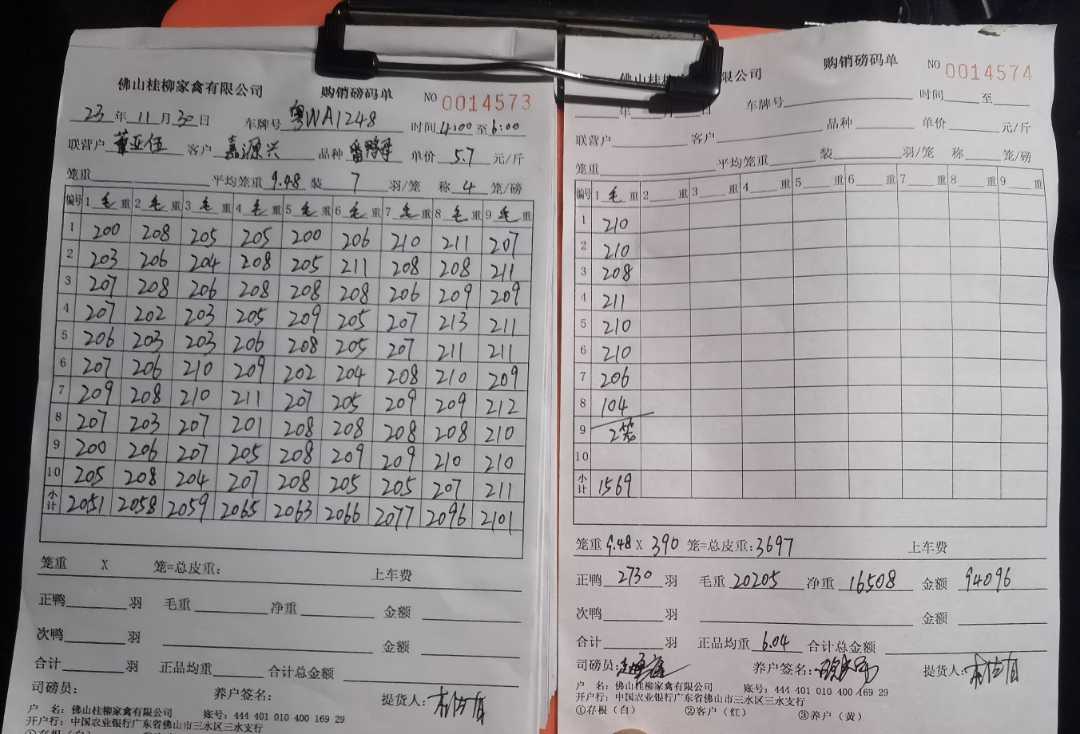 佛山桂柳家禽有限公司 购销磅码单 NO 0014573
23 年 11 月 30 日 车牌号 粤WA1248 时间 4:00 至 6:00
联营户 董亚伍 客户 嘉源兴 品种 番鸭 单价 5.7 元/斤
笼重 平均笼重 9.48 装 7 羽/笼 称 4 笼/磅
编号 1 毛 重 2 毛 重 3 毛 重 4 毛 重 5 毛 重 6 毛 重 7 毛 重 8 毛 重 9 毛 重
1 200 208 205 205 200 206 210 211 207
2 203 206 204 208 205 211 208 208 211
3 207 208 206 208 208 208 206 209 209
4 207 202 203 205 209 205 207 213 211
5 206 203 203 206 208 205 207 211 211
6 207 206 210 209 202 204 208 210 209
7 209 208 210 211 207 205 209 209 212
8 207 203 207 201 208 208 208 208 210
9 200 206 207 205 208 209 209 210 210
10 205 208 204 207 208 205 205 207 211
小计 2051 2058 2059 2065 2063 2066 2077 2096 2101
笼重 X 笼=总皮重: 上车费
正鸭 羽 毛重 净重 金额
次鸭 羽 金额
合计 羽 正品均重 合计总金额
司磅员: 养户签名: 提货人:
户 名: 佛山桂柳家禽有限公司 账号: 444 401 010 400 169 29
开户行: 中国农业银行广东省佛山市三水区三水支行
①存根(白)
佛山桂柳 限公司 购销磅码单 NO 0014574
年 月 日 车牌号 时间 至
联营户 客户 品种 单价 元/斤
笼重 平均笼重 装 羽/笼 称 笼/磅
编号 1 毛 重 2 重 3 重 4 重 5 重 6 重 7 重 8 重 9 重
1 210
2 210
3 208
4 211
5 210
6 210
7 206
8 104
9 2笼
10
小计 1569
笼重 9.48 X 390 笼=总皮重: 3697 上车费
正鸭 2730 羽 毛重 20205 净重 16508 金额 94096
次鸭 羽 金额
合计 羽 正品均重 6.04 合计总金额
司磅员: 养户签名: 提货人:
户 名: 佛山桂柳家禽有限公司 账号: 444 401 010 400 169 29
开户行: 中国农业银行广东省佛山市三水区三水支行
①存根(白) ②客户(红) ③养户(黄)